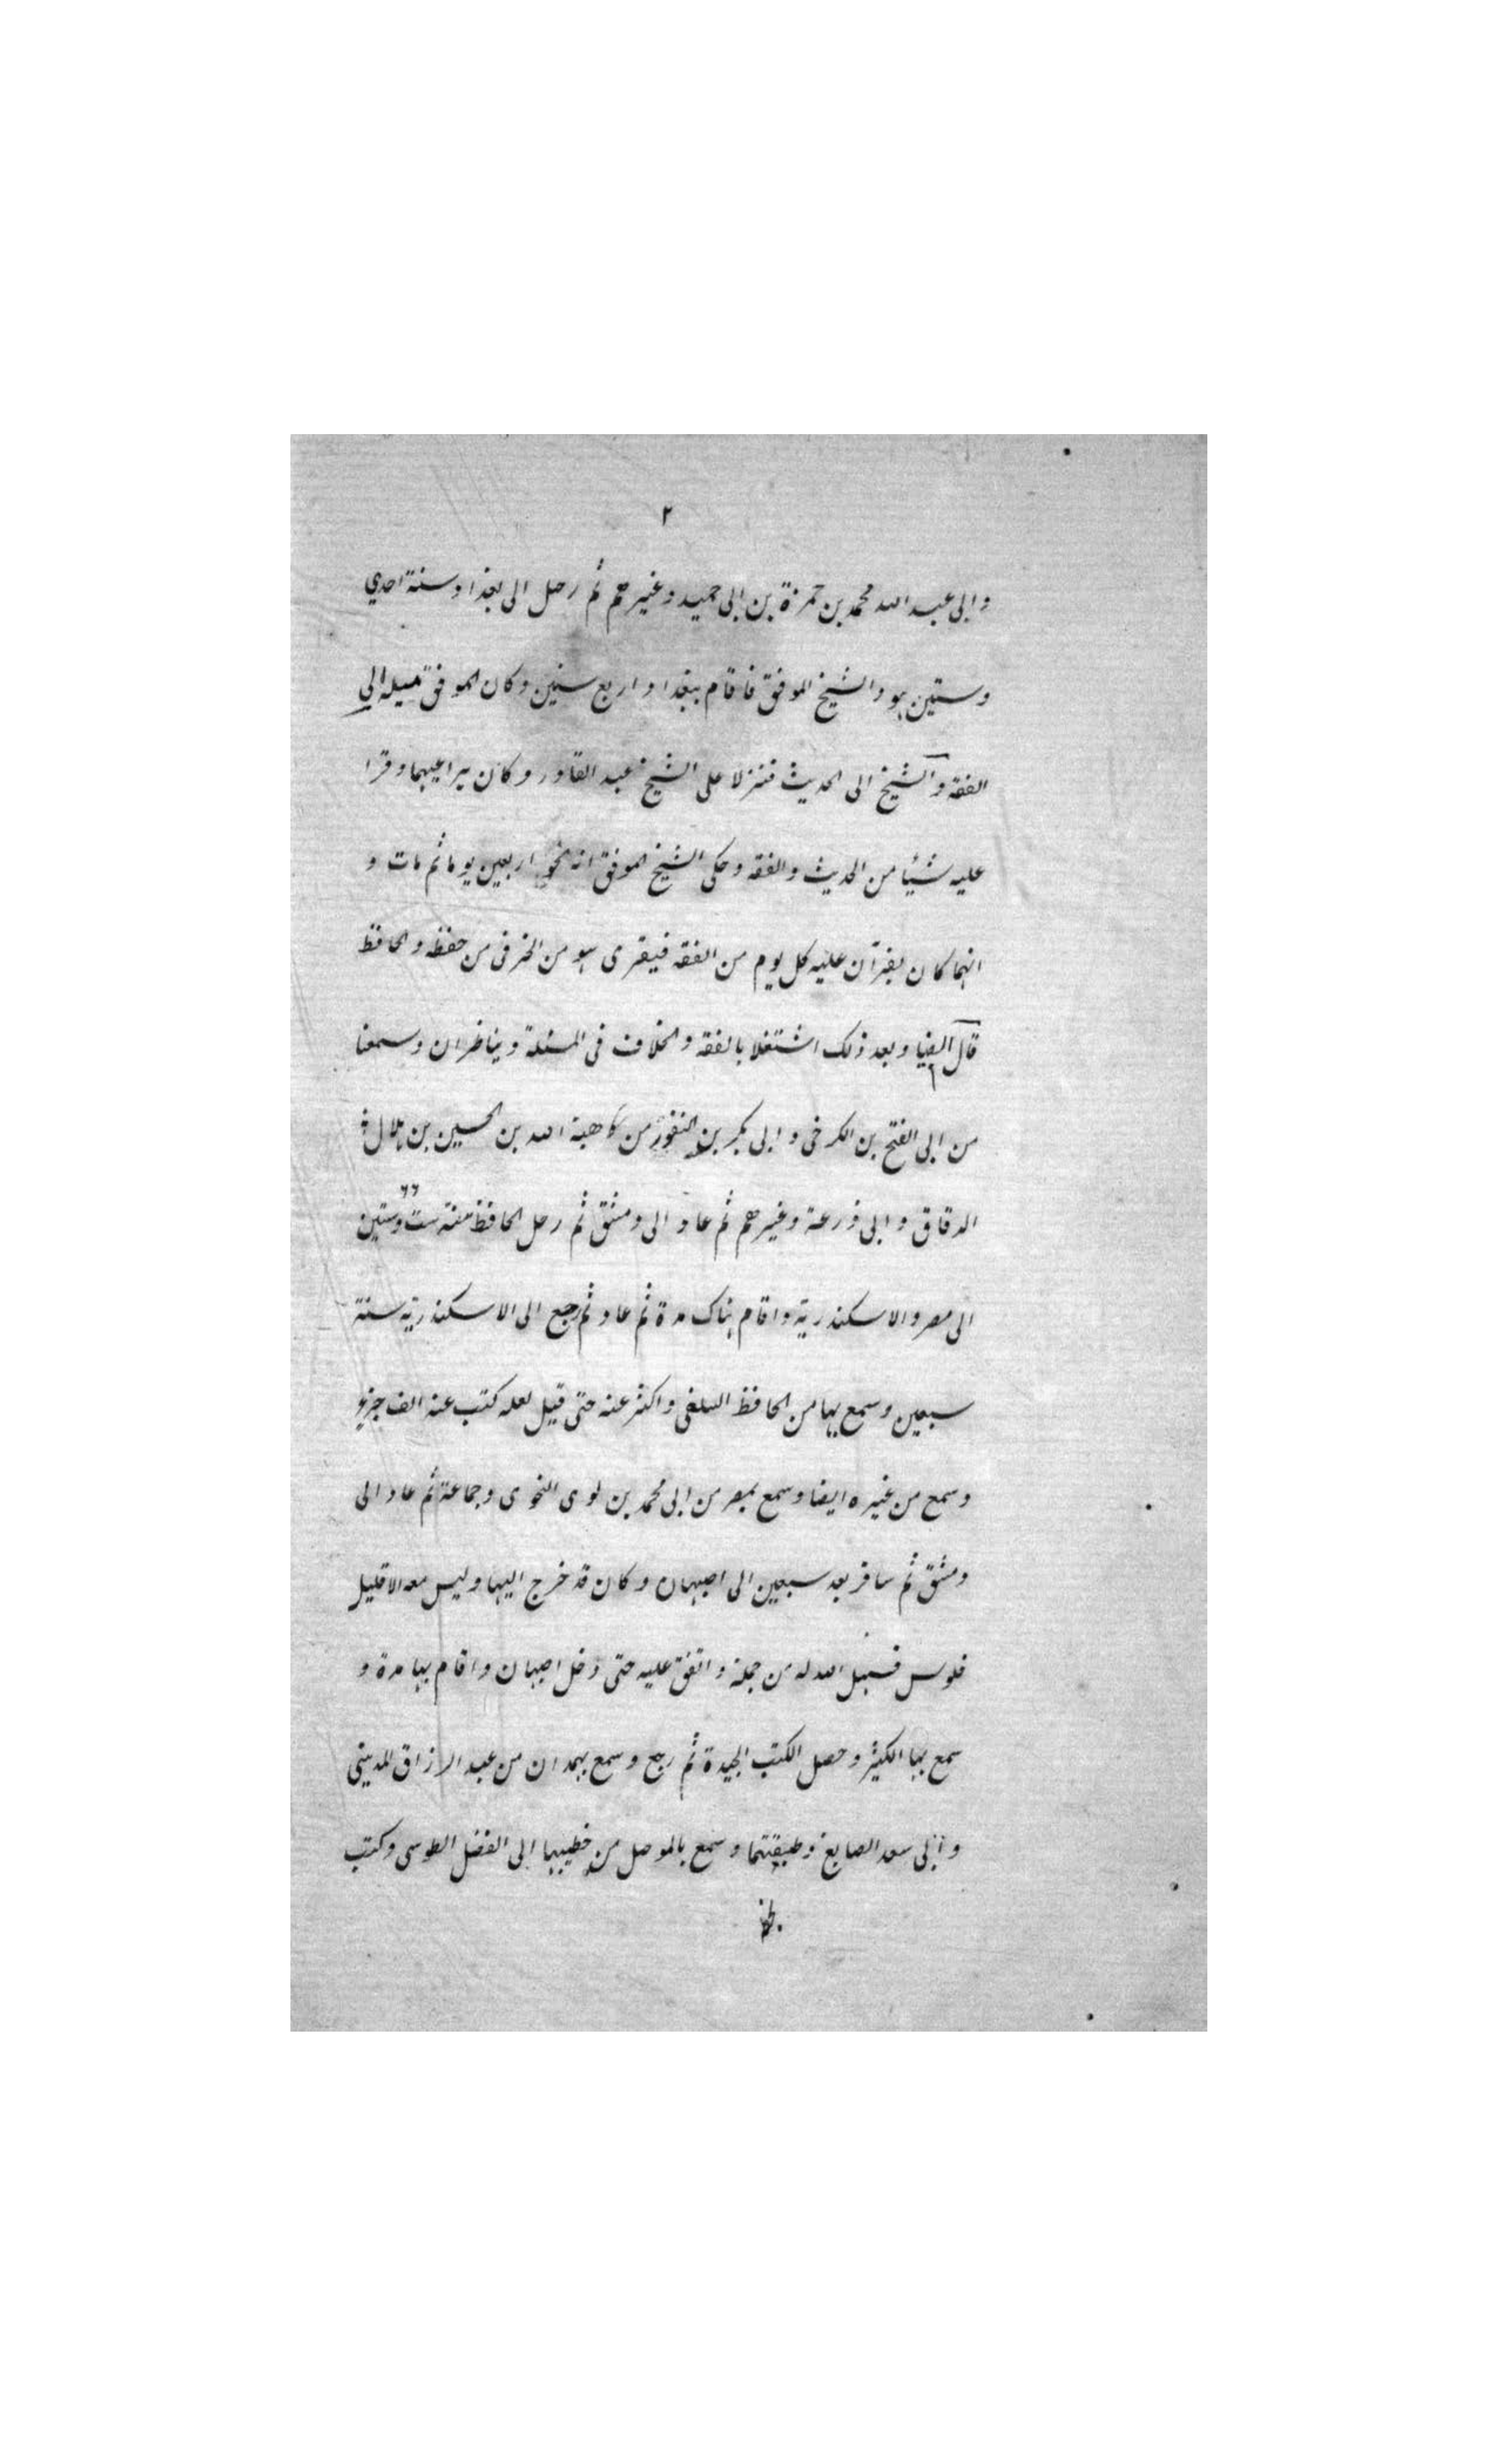 ٢
وابى عبد الله محمد بن حمزة بن ابى جميد وغيرهم ثم رحل الى بغداد سنة احدي
وستين هو والشيخ الموفق فاقام ببغداد اربع سنين وكان الموفق ميله الي
الفقه والشيخ الى الحديث فنزلا على الشيخ عبد القادر وكان يراعيهما وقرا
عليه شيئا من الحديث والفقه وحكى الشيخ الموفق انه نحو اربعين يوما ثم مات و
انهما كان يقرآن عليه كل يوم من الفقه فيقرى هو من الخرقى من حفظه والحافظ
قال الضيا وبعد ذلك اشتغلا بالفقه والخلاف فى المسئلة ويناظران وسمعنا
من ابى الفتح بن الكرخى وابى بكر بن النقور من هبة الله بن الحسين بن هلال
الدقاق وابى ذرعة وغيرهم ثم عاد الى دمشق ثم رحل الحافظ سنة ست وستين ٦٦
الى مصر والاسكندرية واقام هناك مدة ثم عاد ثم رجع الى الاسكندرية سنة
سبعين وسمع بها من الحافظ السلفى واكثر عنه حتى قيل لعله كتب عنه الف جزء
وسمع من غيره ايضا وسمع بمصر من ابى محمد بن لوى النحوى وجماعة ثم عاد الى
دمشق ثم سافر بعد سبعين الى اصبهان وكان قد خرج اليها وليس معه الا قليل
فلوس فسهل الله له من حمله واتفق عليه حتى دخل اصبهان واقام بها مدة و
سمع بها الكثير وحصل الكتب الجيدة ثم رجع وسمع بهمدان من عبد الرزاق المدينى
وابى سعد الصايغ وطبقتهما وسمع بالموصل من خطيبها ابى الفضل الطوسى وكتب